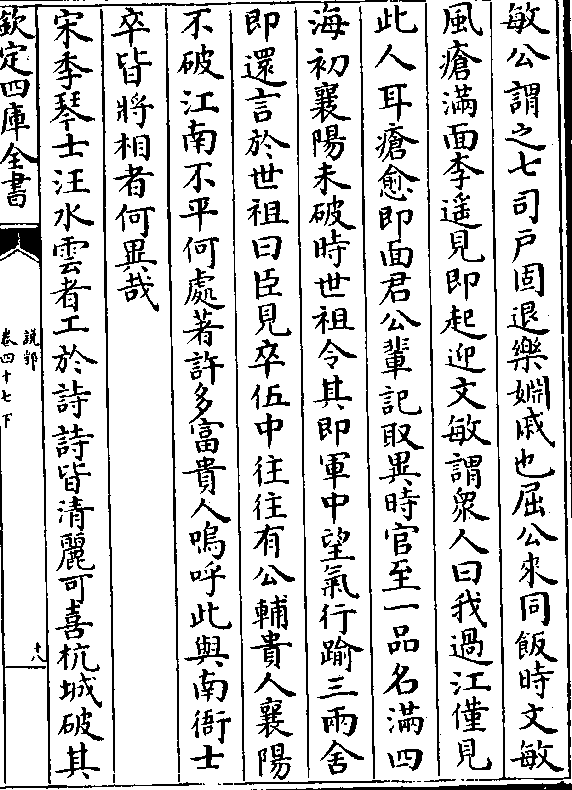 敏公謂之七司戶固退樂婣戚也屈公來同飯時文敏
風瘡滿面李遥見即起迎文敏謂衆人曰我過江僅見
此人耳瘡愈即面君公輩記取異時官至一品名滿四
海初襄陽未破時世祖令其即軍中望氣行踰三兩舍
即還言於世祖曰臣見卒伍中往往有公輔貴人襄陽
不破江南不平何處著許多富貴人嗚呼此與南衙士
卒皆將相者何異哉
宋季琴士汪水雲者工於詩詩皆清麗可喜杭城破其
欽定四庫全書
說郛
卷四十七下
十八